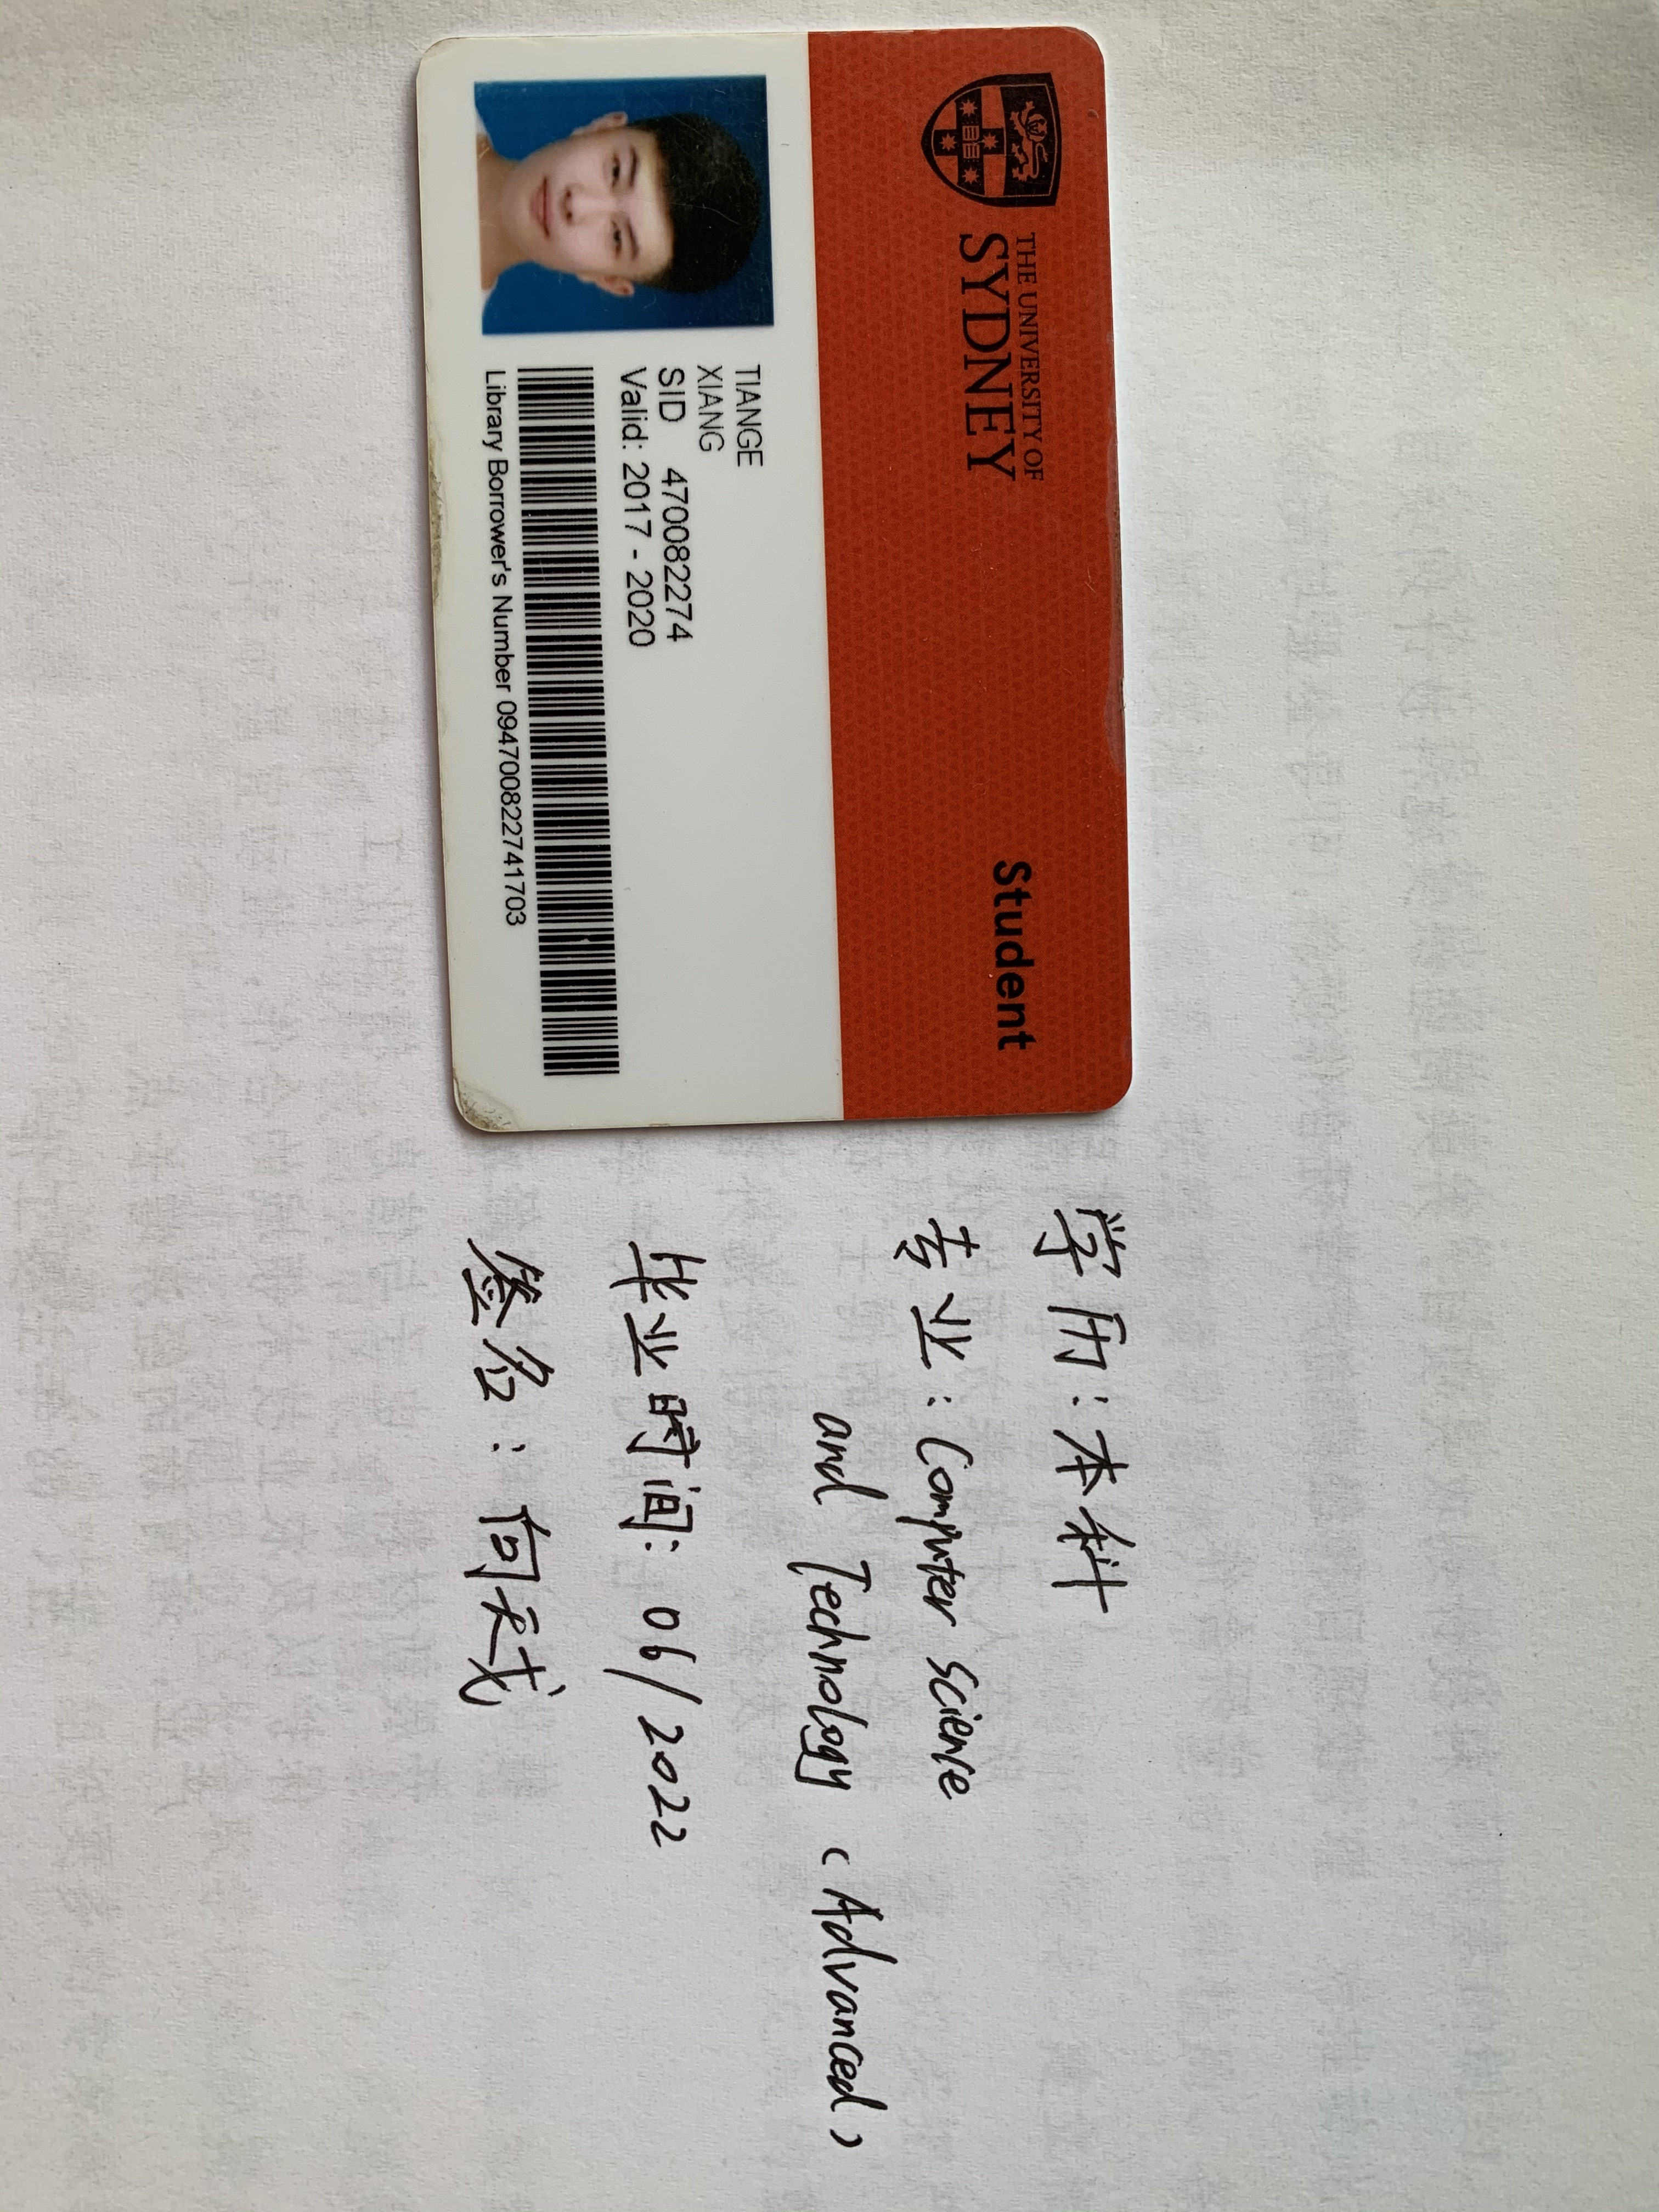 THE UNIVERSITY OF
SYDNEY
Student
TIANGE
XIANG
SID 470082274
Valid: 2017 - 2020
Library Borrower's Number 094700822741703
学历:本科
专业:Computer Science
and Technology (Advanced)
毕业时间:06/2022
签名:向天戈